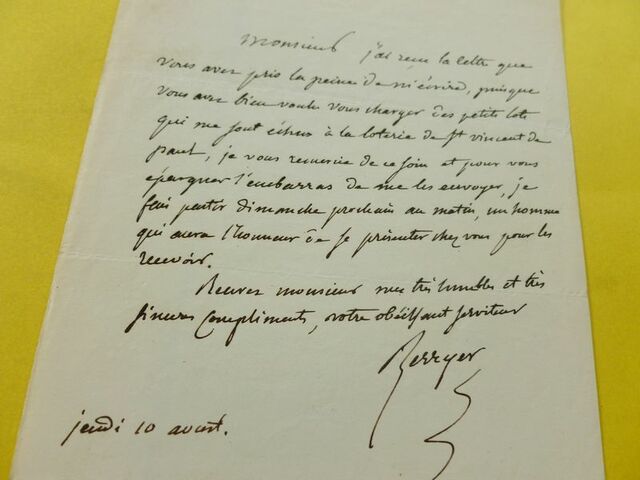 Monsieur j'ai reçu la lettre que
vous avez pris la peine de m'écrire, puisque
vous avez bien voulu vous charger des petits lots
qui me sont échus à la loterie de St vincent de
paul, je vous remercie de ce soin et pour vous
épargner l'embarras de me les envoyer, je
fais partir dimanche prochain au matin, un homme
qui aura l'honneur de se présenter chez vous pour les
recevoir.
Recevez monsieur mes très humbles et très
sinceres compliments, votre obéissant serviteur
Berryer
jeudi 10 aoust.